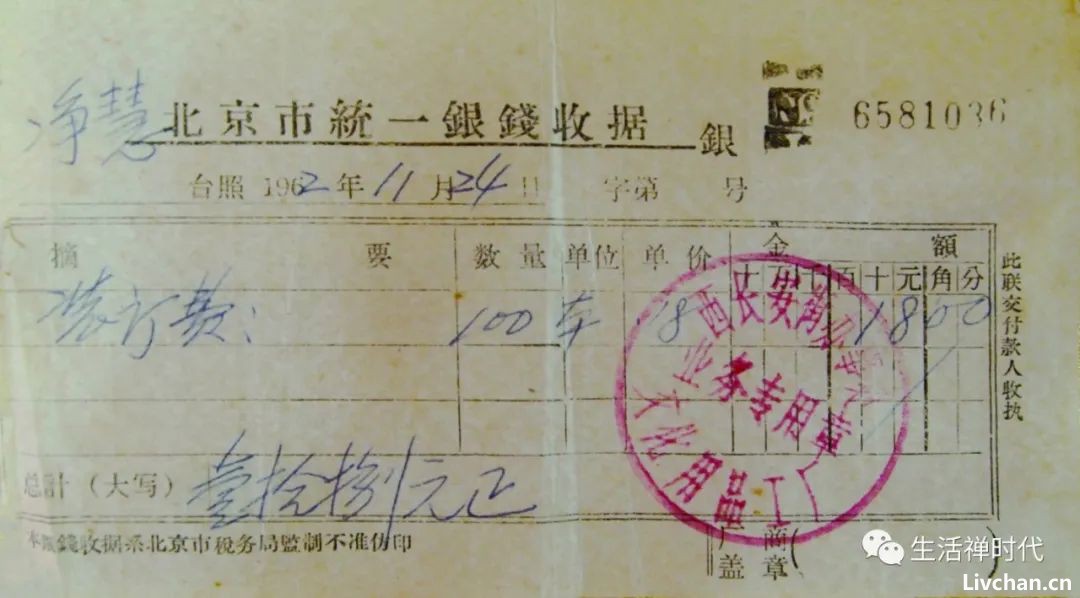 净慧
北京市統一銀錢收据 銀 6581036
台照 1962年11月24日 字第 号
摘要 数量 单位 单价 金額
十万千百十元角分
装订费: 100 本 18 1800
总計（大写） 壹拾捌元正
本銀錢收据系北京市税务局監制不准仿印
厂商盖章（ ）
此联交付款人收执
西长安街
业务专用章
文化用品工厂
生活禅时代
Livchan.cn